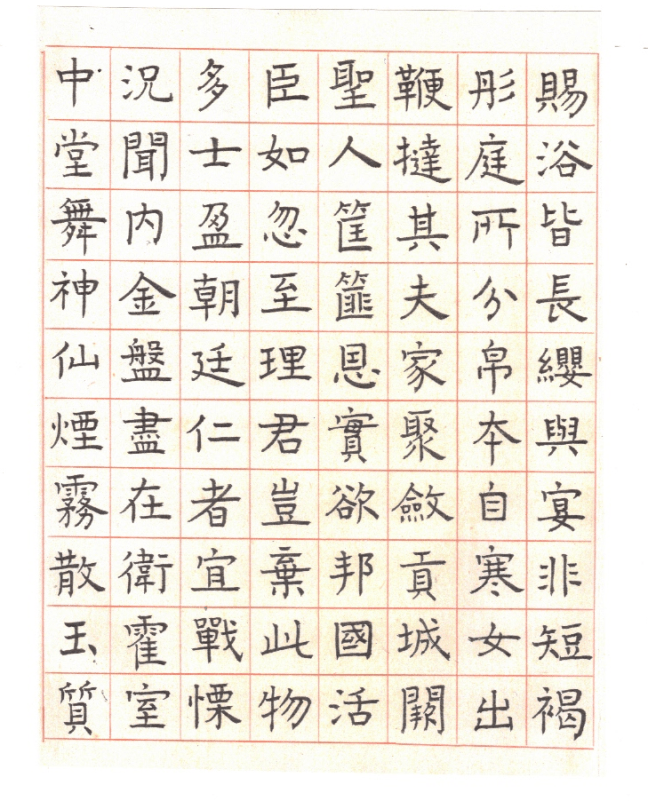 賜浴皆長纓與宴非短褐
彤庭所分帛本自寒女出
鞭撻其夫家聚斂貢城闕
聖人筐篚恩實欲邦國活
臣如忽至理君豈棄此物
多士盈朝廷仁者宜戰慄
況聞内金盤盡在衛霍室
中堂舞神仙煙霧散玉質